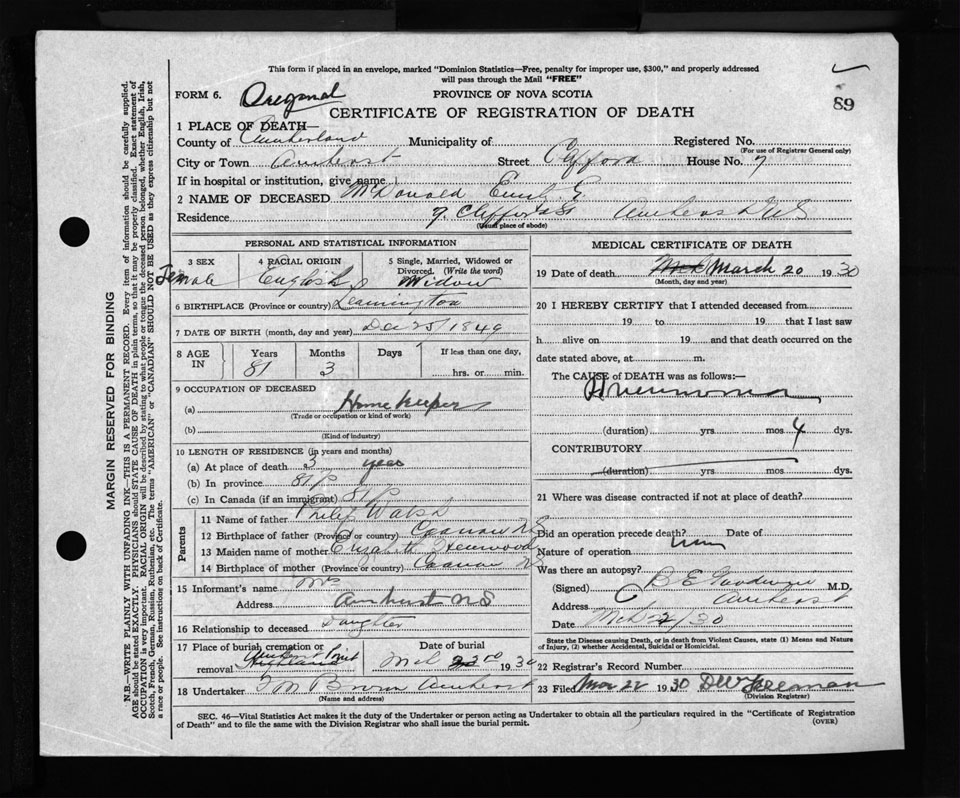 This form if placed in an envelope, marked "Dominion Statistics—Free, penalty for improper use, $300," and properly addressed
will pass through the Mail "FREE"
FORM 6. Original PROVINCE OF NOVA SCOTIA
89
CERTIFICATE OF REGISTRATION OF DEATH
1 PLACE OF DEATH—
County of Cumberland Municipality of Registered No.
(For use of Registrar General only)
City or Town Amherst Street Clifford House No. 7
If in hospital or institution, give name
2 NAME OF DECEASED McDonald E
Residence 7 Clifford St Amherst NS
(Usual place of abode)
PERSONAL AND STATISTICAL INFORMATION
3 SEX 4 RACIAL ORIGIN 5 Single, Married, Widowed or
Divorced. (Write the word)
Female English Widow
6 BIRTHPLACE (Province or country) Leamington
7 DATE OF BIRTH (month, day and year) Dec 25/1849
8 AGE IN Years Months Days If less than one day,
81 3 hrs. or min.
9 OCCUPATION OF DECEASED
(a) Home keeper
(Trade or occupation or kind of work)
(b)
(Kind of industry)
10 LENGTH OF RESIDENCE (in years and months)
(a) At place of death 3 years
(b) In province 81
(c) In Canada (if an immigrant) 81
Parents
11 Name of father Philip Walsh
12 Birthplace of father (Province or country) NS
13 Maiden name of mother Elizabeth
14 Birthplace of mother (Province or country) NS
15 Informant's name Mrs
Address Amherst NS
16 Relationship to deceased Daughter
17 Place of burial, cremation or
removal Amherst Point Highland
Date of burial
Mch 22nd 1930
18 Undertaker Brown Amherst
(Name and address)
MEDICAL CERTIFICATE OF DEATH
19 Date of death March 20 1930
(Month, day and year)
20 I HEREBY CERTIFY that I attended deceased from
19 to 19 that I last saw
h alive on 19 and that death occurred on the
date stated above, at m.
The CAUSE of DEATH was as follows:—
Pneumonia
(duration) yrs mos 4 dys.
CONTRIBUTORY
(duration) yrs mos dys.
21 Where was disease contracted if not at place of death?
Did an operation precede death? Date of
Nature of operation
Was there an autopsy?
(Signed) C B E Goodwin M.D.
Address Amherst
Date Mch /30
State the Disease causing Death, or in death from Violent Causes, state (1) Means and Nature
of Injury, (2) whether Accidental, Suicidal or Homicidal.
22 Registrar's Record Number
23 Filed Mar 22 1930 DW Freeman
(Division Registrar)
SEC. 46—Vital Statistics Act makes it the duty of the Undertaker or person acting as Undertaker to obtain all the particulars required in the "Certificate of Registration
of Death" and to file the same with the Division Registrar who shall issue the burial permit.
(OVER)
MARGIN RESERVED FOR BINDING
N.B.—WRITE PLAINLY WITH UNFADING INK—THIS IS A PERMANENT RECORD. Every item of information should be carefully supplied.
AGE should be stated EXACTLY. PHYSICIANS should STATE CAUSE OF DEATH in plain terms, so that it may be properly classified. Exact statement of
OCCUPATION is very important. RACIAL ORIGIN will be described by stating to what people or tongue the deceased person belonged, whether English, Irish,
Scotch, French, German, Russian, Ruthenian, etc. The terms "AMERICAN" or "CANADIAN" SHOULD NOT BE USED as they express citizenship but not
a race or people. See instructions on back of Certificate.